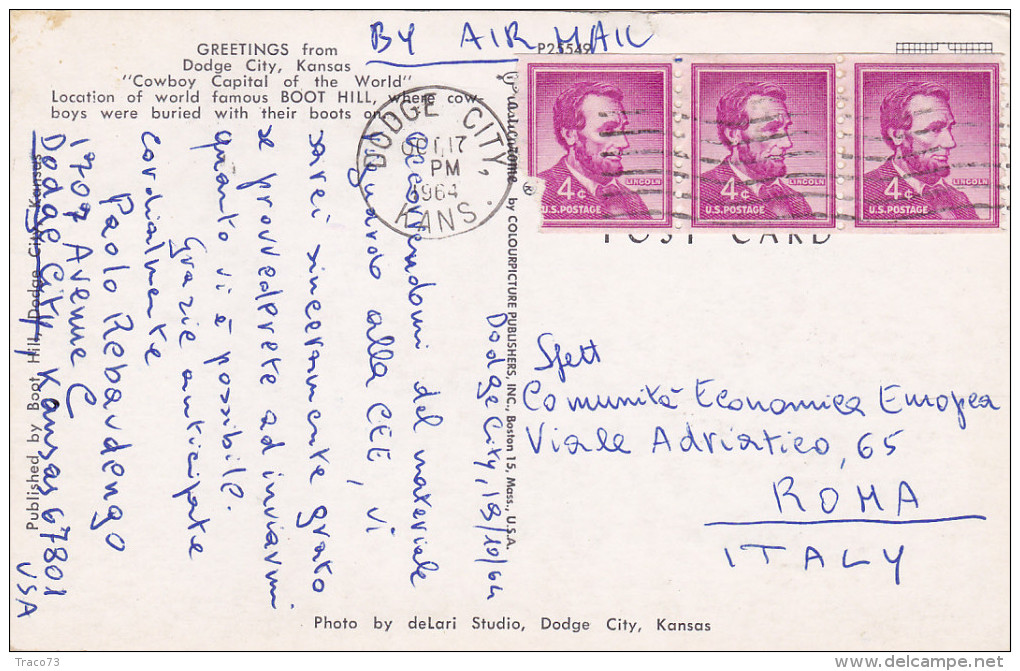 BY AIR MAIL
P25549
GREETINGS from
Dodge City, Kansas
"Cowboy Capital of the World"
Location of world famous BOOT HILL, where cow-
boys were buried with their boots on.
DODGE CITY,
OCT 17
PM
1964
KANS.
4¢ LINCOLN
U.S. POSTAGE
4¢ LINCOLN
U.S. POSTAGE
4¢ LINCOLN
U.S. POSTAGE
POST CARD
Plastichrome ® by COLOURPICTURE PUBLISHERS, INC., Boston 15, Mass., U.S.A.
Dodge City, 18/10/64
del materiale
riguardo alla CEE, vi
sarei sinceramente grato
se provvederete ad inviarmi
quanto vi è possibile.
Grazie anticipate
Cordialmente
Paolo Rebaudengo
1707 Avenue C
Dodge City, Kansas 67801
USA
Published by Boot Hill, Dodge City, Kansas
Spett
Comunità Economica Europea
Viale Adriatico, 65
ROMA
ITALY
Photo by deLari Studio, Dodge City, Kansas
Traco73
delcampe.net